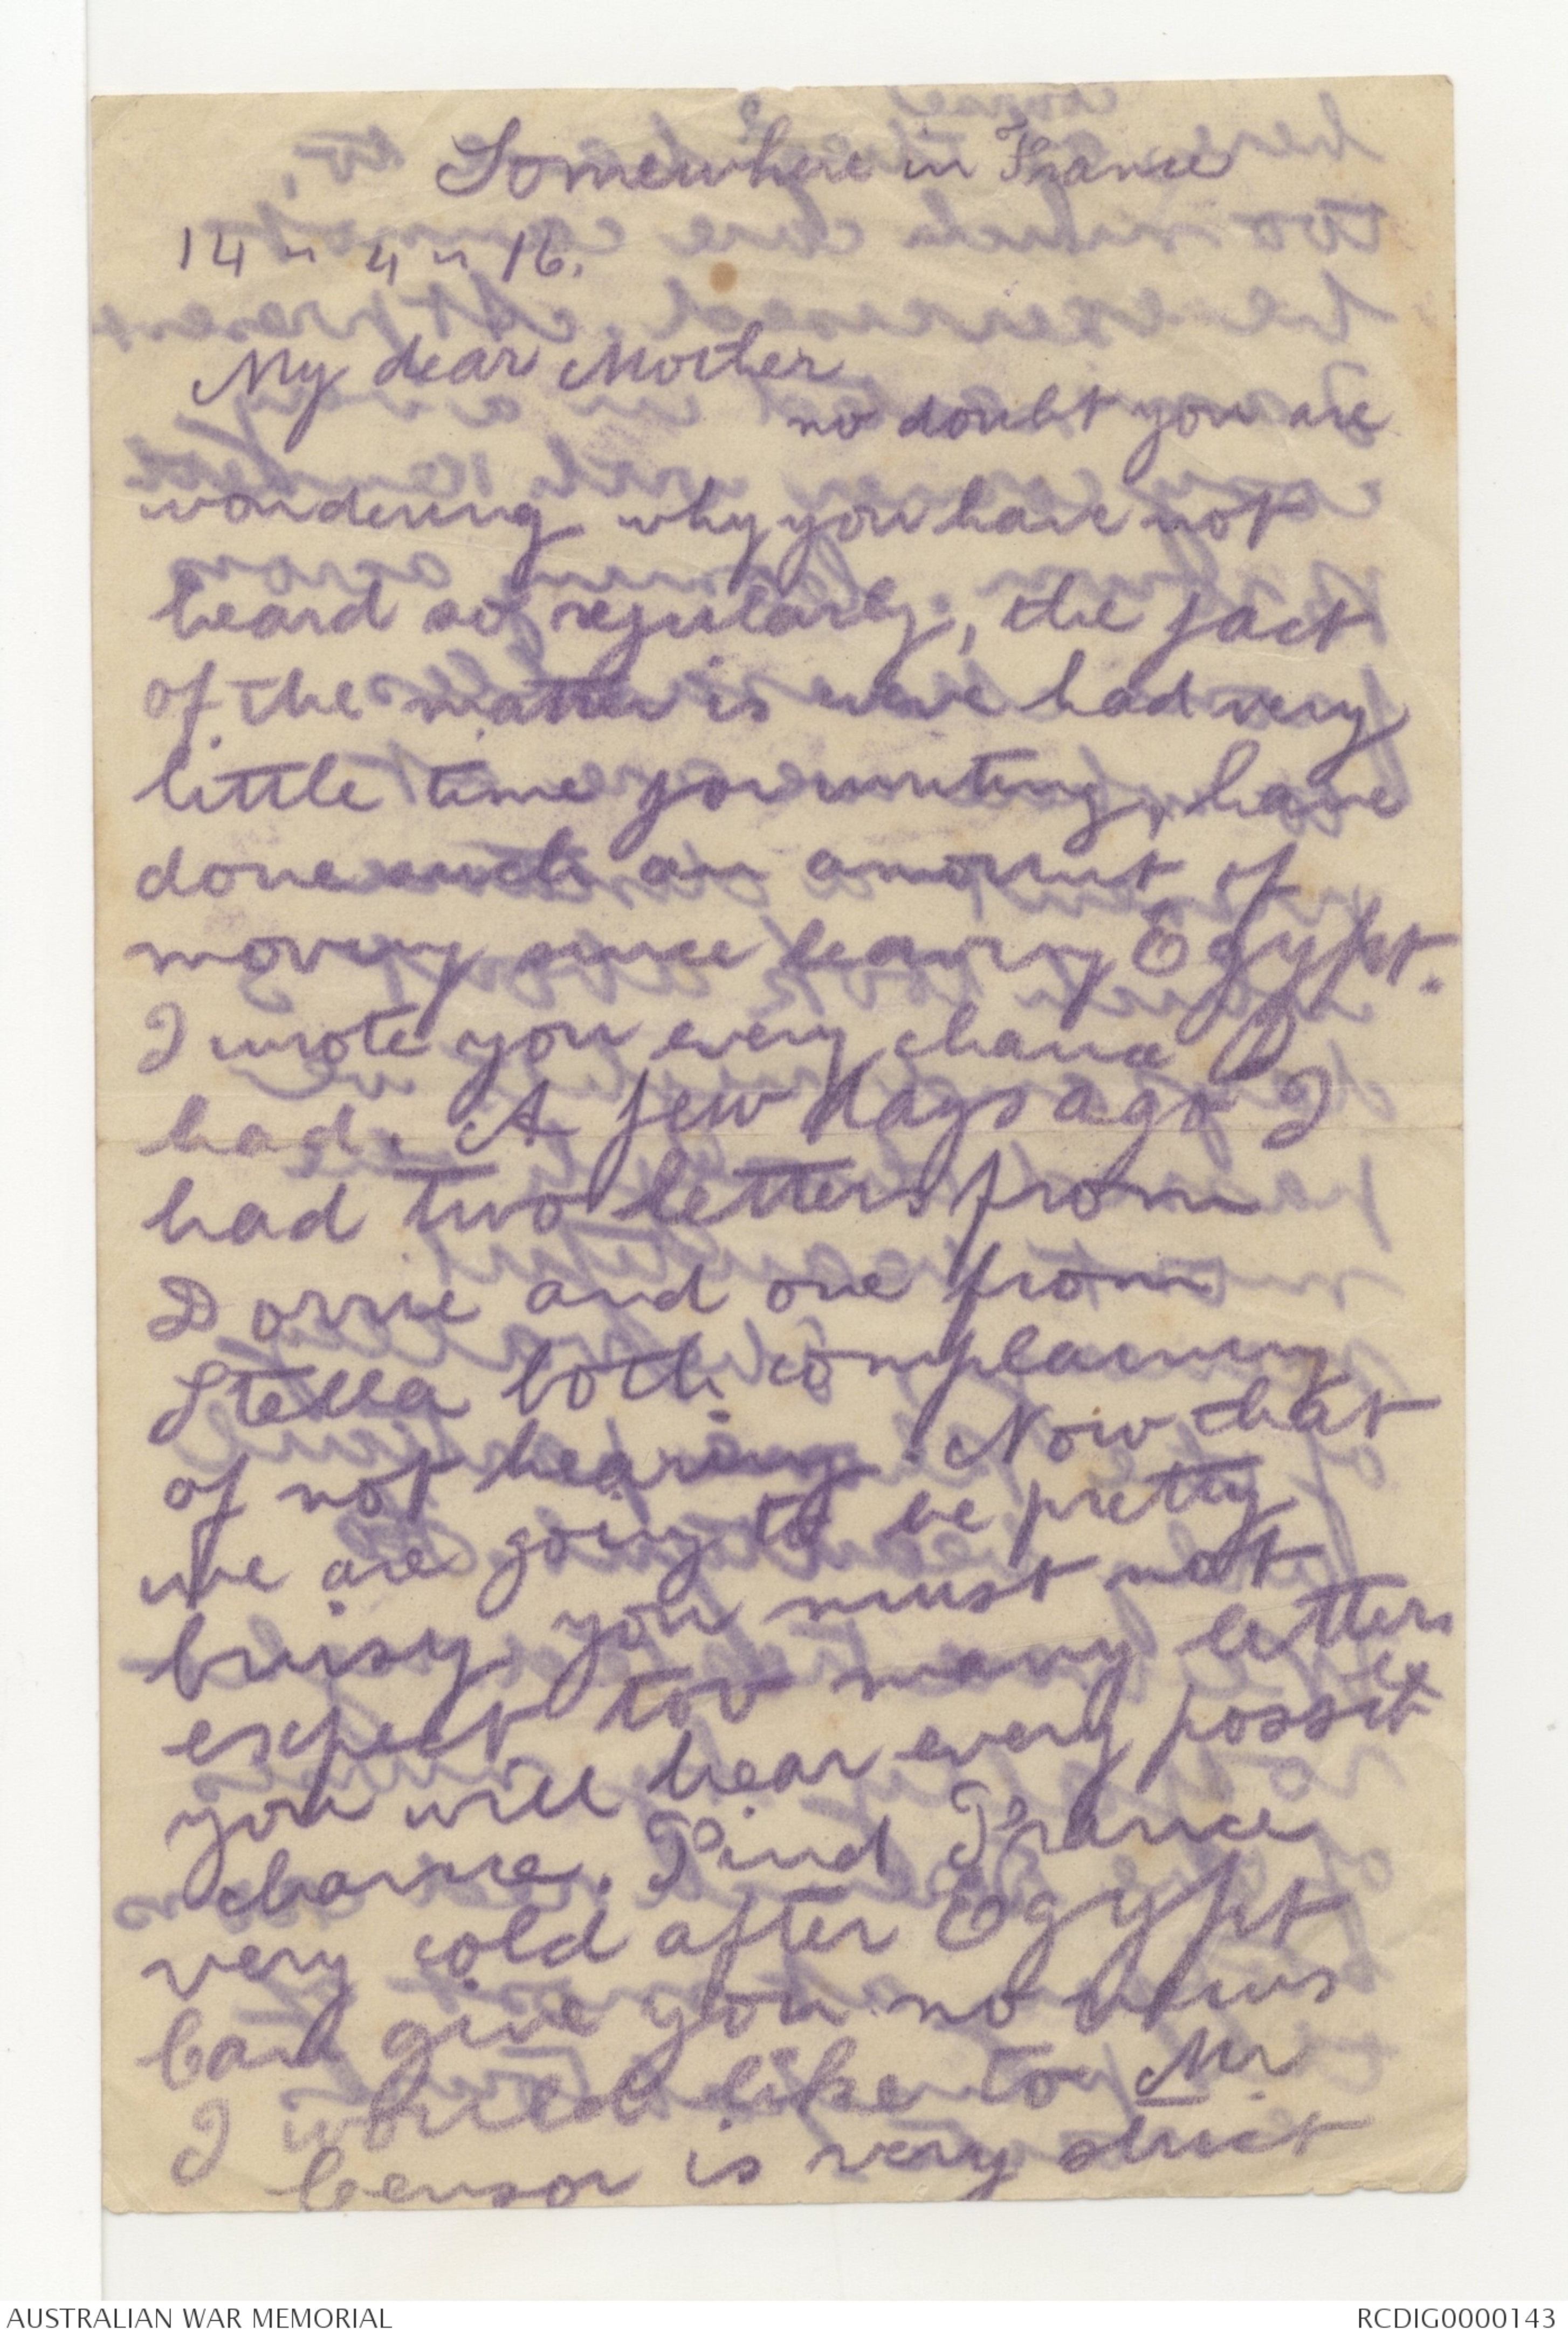 Somewhere in France
14 " 4 " 16.
My dear Mother
no doubt you are
wondering why you have not
heard so regularly, the fact
of the matter is weve had very
little time for writing, have
done such an amount of
moving since leaving Egypt.
I wrote you every chance I
had. A few days ago I
had two letters from
Dorrie and one from
Stella both complaining
of not hearing. Now that
we are going to be pretty
busy you must not
expect too many letters
you will hear every possible
chance. Find France
very cold after Egypt
Can give you no news
I would like to Mr
Censor is very strict
AUSTRALIAN WAR MEMORIAL
RCDIG0000143